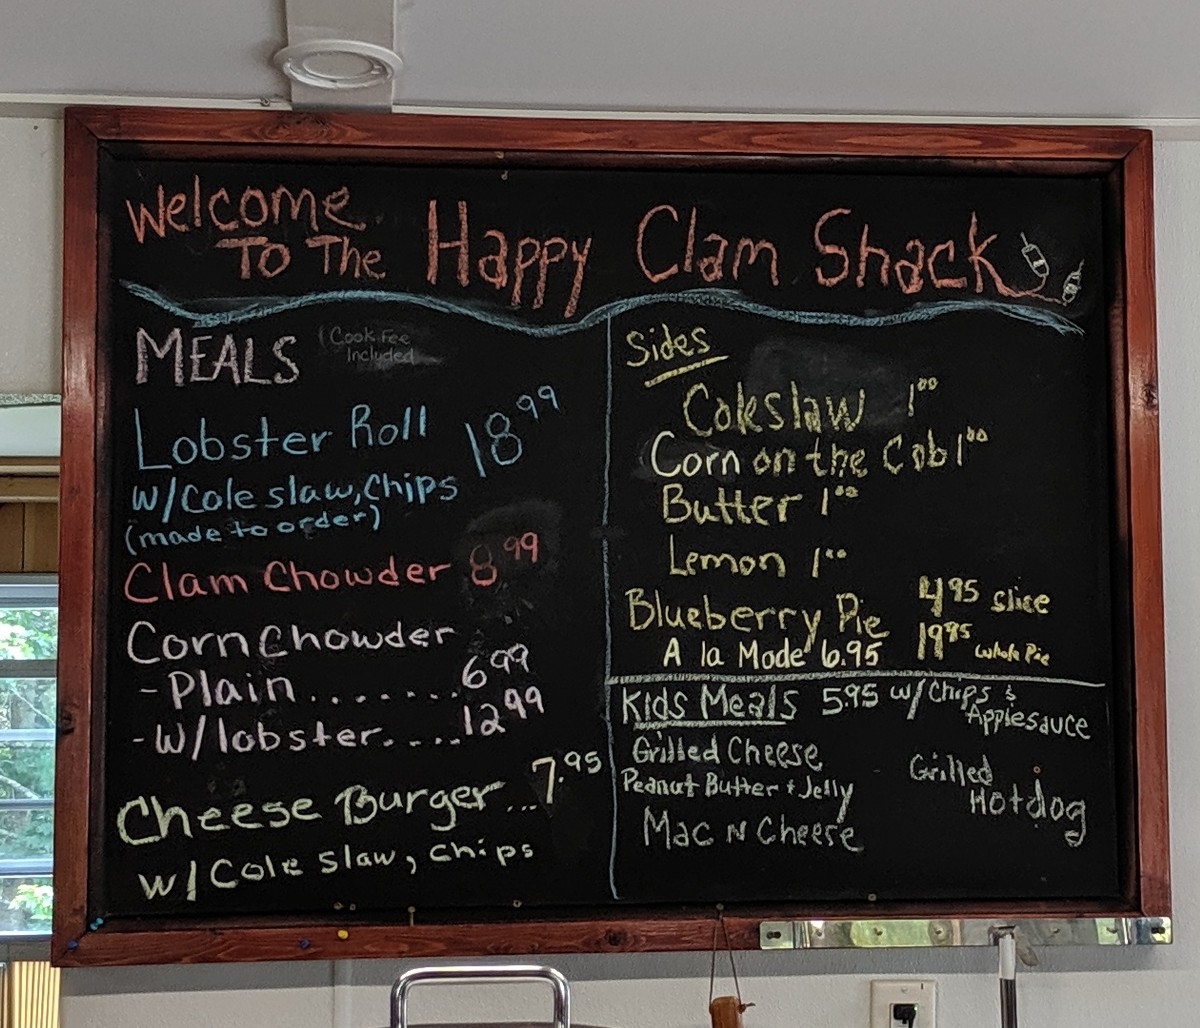 Welcome
To The Happy Clam Shack
MEALS
Cook Fee
Included
Lobster Roll 18 99
w/Cole slaw, Chips
(made to order)
Clam Chowder 8 99
Corn Chowder
- Plain........6 99
- W/lobster....12 99
Cheese Burger...7.95
w/Cole slaw, chips
Sides
Coleslaw 1 00
Corn on the Cob 1 00
Butter 1 00
Lemon 1 00
Blueberry Pie 4 95 slice
19 95 whole Pie
A la Mode 6.95
Kids Meals 5.95 w/Chips &
Applesauce
Grilled Cheese
Peanut Butter + Jelly
Mac N Cheese
Grilled
Hotdog